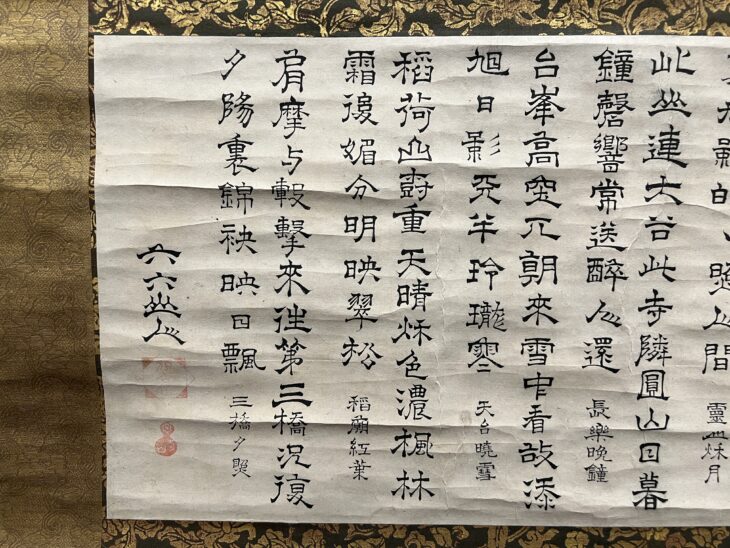 影的照人間 靈山秋月
此山連大谷此寺隣圓山日暮
鐘磬響常送醉人還 長樂晚鐘
台峯高突兀朝來雪中看故添
旭日影天半玲瓏寒 天台曉雪
稻荷山尌重天晴秋色濃楓林
霜後媚分明映翠松 稻廟紅葉
肩摩与轂擊來往第三橋況復
夕陽裏錦袂映日飄 三橋夕照
六六山人